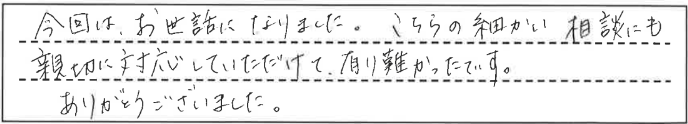 今回は、お世話になりました。こちらの細かい相談にも
親切に対応していただけて、有り難かったです。
ありがとうございました。